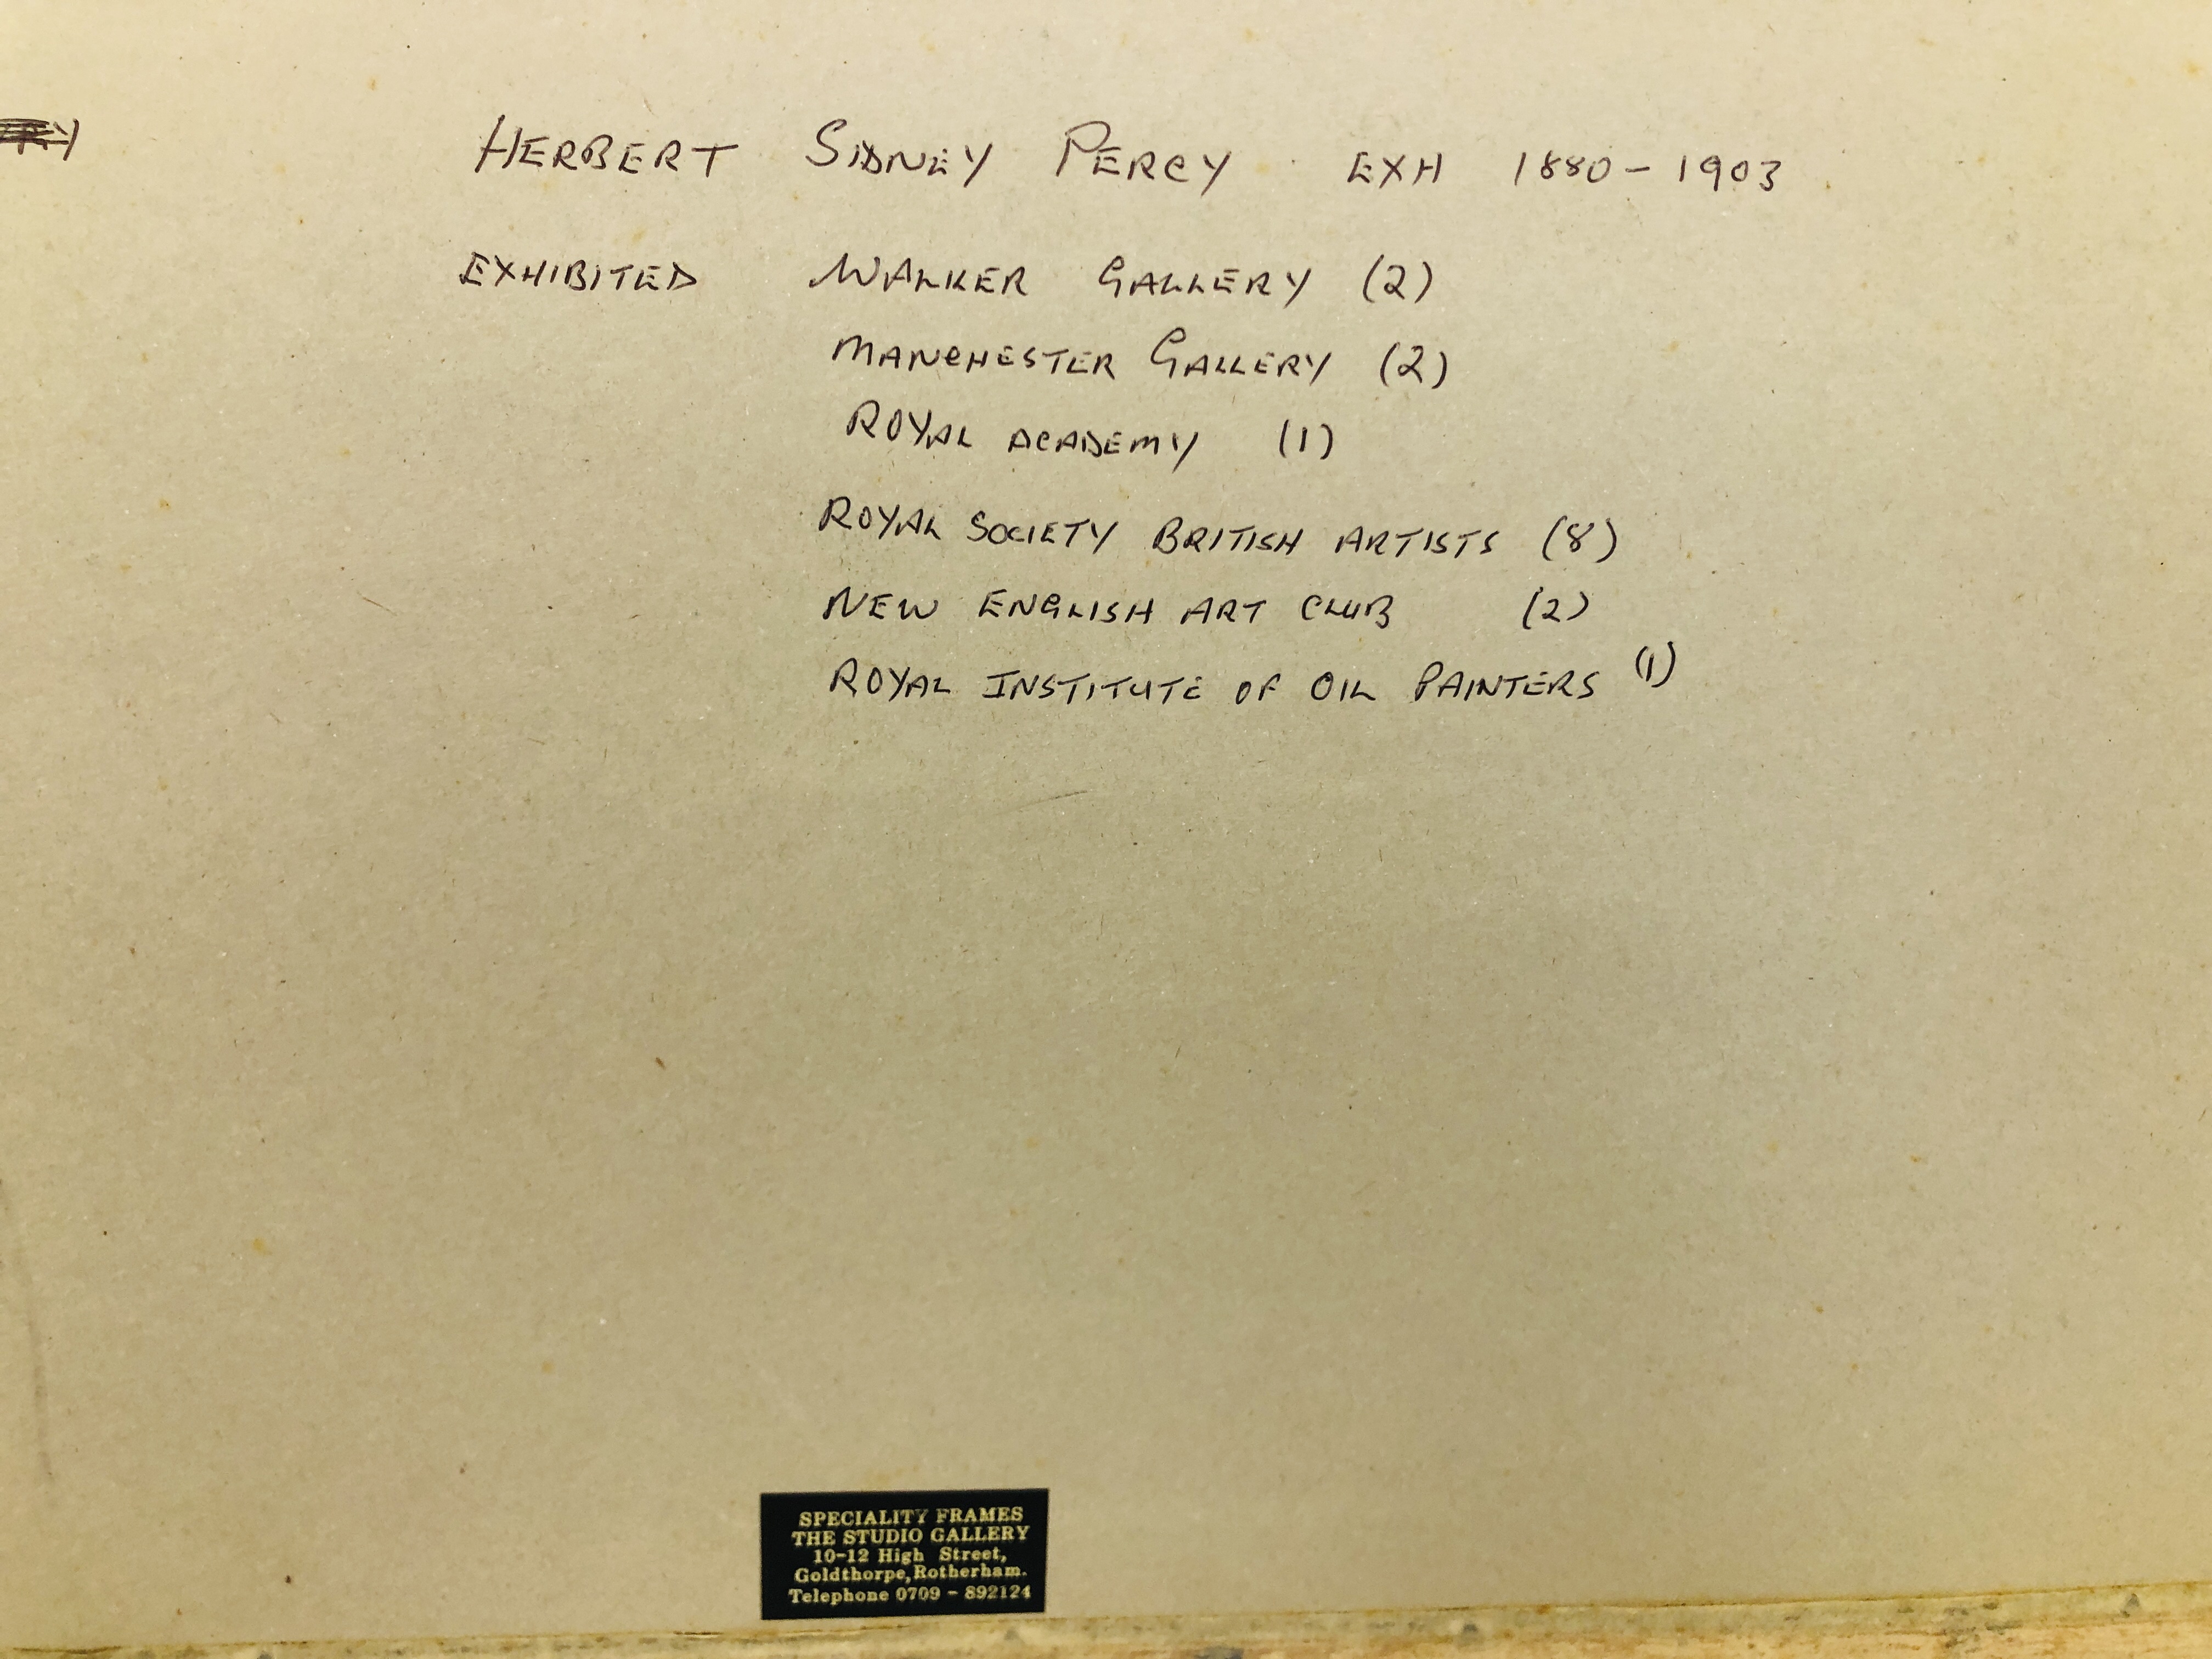 HERBERT SIDNEY PERCY EXH 1880-1903
EXHIBITED WALKER GALLERY (2)
MANCHESTER GALLERY (2)
ROYAL ACADEMY (1)
ROYAL SOCIETY BRITISH ARTISTS (8)
NEW ENGLISH ART CLUB (2)
ROYAL INSTITUTE OF OIL PAINTERS (1)
SPECIALITY FRAMES
THE STUDIO GALLERY
10-12 High Street,
Goldthorpe, Rotherham.
Telephone 0709 - 892124